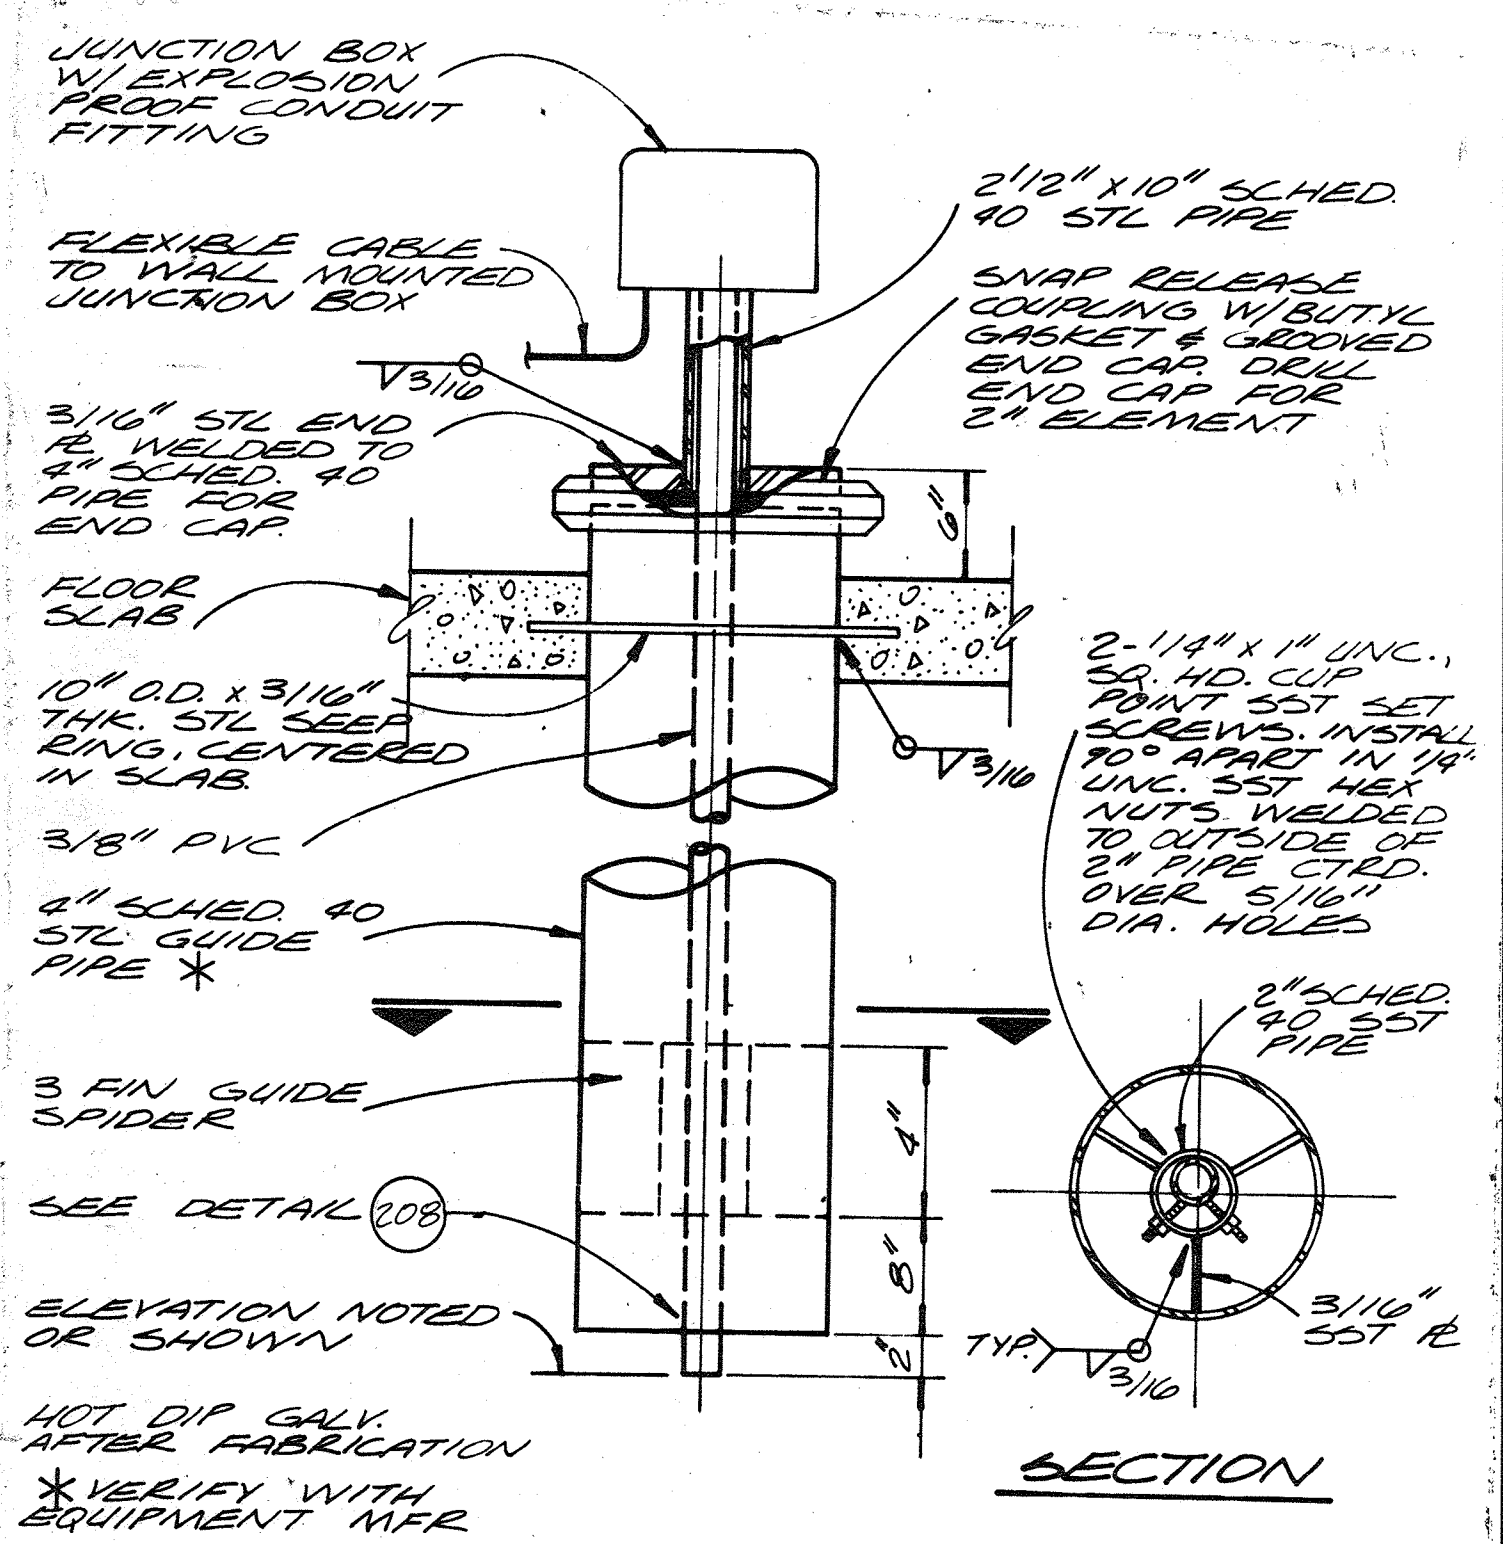 JUNCTION BOX
W/ EXPLOSION
PROOF CONDUIT
FITTING
FLEXIBLE CABLE
TO WALL MOUNTED
JUNCTION BOX
3/16
3/16" STL END
PL WELDED TO
4" SCHED. 40
PIPE FOR
END CAP.
FLOOR
SLAB
10" O.D. x 3/16"
THK. STL SEEP
RING, CENTERED
IN SLAB.
3/8" PVC
4" SCHED. 40
STL GUIDE
PIPE *
3 FIN GUIDE
SPIDER
SEE DETAIL 208
ELEVATION NOTED
OR SHOWN
HOT DIP GALV.
AFTER FABRICATION
* VERIFY WITH
EQUIPMENT MFR
2 1/2" x 10" SCHED.
40 STL PIPE
SNAP RELEASE
COUPLING W/BUTYL
GASKET & GROOVED
END CAP. DRILL
END CAP FOR
2" ELEMENT
6"
3/16
2-1/4" x 1" UNC.,
SQ. HD. CUP
POINT SST SET
SCREWS. INSTALL
90° APART IN 1/4"
UNC. SST HEX
NUTS WELDED
TO OUTSIDE OF
2" PIPE CTRD.
OVER 5/16"
DIA. HOLES
2" SCHED.
40 SST
PIPE
4"
8"
2"
3/16"
SST PL
TYP.
3/16
SECTION